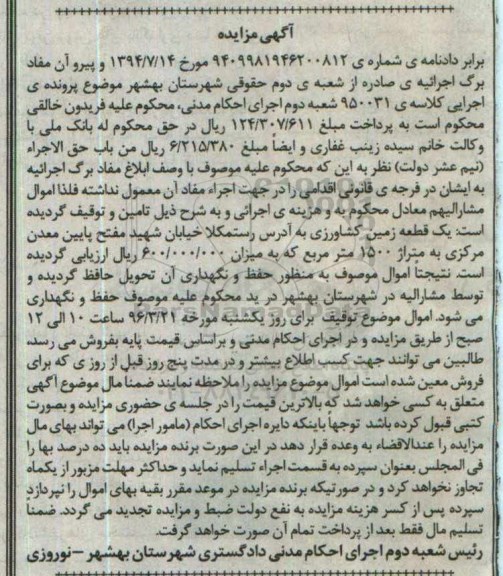 آگهی مزایده
برابر دادنامه ی شماره ی ۹۴۰۹۹۸۱۹۴۶۲۰۰۸۱۲ مورخ ۱۳۹۴/۷/۱۴ و پیرو آن مفاد
برگ اجرائیه ی صادره از شعبه ی دوم حقوقی شهرستان بهشهر موضوع پرونده ی
اجرایی کلاسه ی ۹۵۰۰۳۱ شعبه دوم اجرای احکام مدنی، محکوم علیه فریدون خالقی
محکوم است به پرداخت مبلغ ۱۲۴/۳۰۷/۶۱۱ ریال در حق محکوم له بانک ملی با
وکالت خانم سیده زینب غفاری و ایضاً مبلغ ۶/۲۱۵/۳۸۰ ریال من باب حق الاجراء
(نیم عشر دولت) نظر به این که محکوم علیه موصوف با وصف ابلاغ مفاد برگ اجرائیه
به ایشان در فرجه ی قانونی اقدامی را در جهت اجراء مفاد آن معمول نداشته فلذا اموال
مشارالیهم معادل محکوم به و هزینه ی اجرائی و به شرح ذیل تامین و توقیف گردیده
است: یک قطعه زمین کشاورزی به آدرس رستمکلا خیابان شهید مفتح پایین معدن
مرکزی به متراژ ۱۵۰۰ متر مربع که به میزان ۶۰۰/۰۰۰/۰۰۰ ریال ارزیابی گردیده
است. نتیجتاً اموال موصوف به منظور حفظ و نگهداری آن تحویل حافظ گردیده و
توسط مشارالیه در شهرستان بهشهر در ید محکوم علیه موصوف حفظ و نگهداری
می شود. اموال موضوع توقیف برای روز یکشنبه مورخه ۹۶/۳/۲۱ ساعت ۱۰ الی ۱۲
صبح از طریق مزایده و در اجرای احکام مدنی و براساس قیمت پایه بفروش می رسد،
طالبین می توانند جهت کسب اطلاع بیشتر و در مدت پنج روز قبل از روز ی که برای
فروش معین شده است اموال موضوع مزایده را ملاحظه نمایند ضمناً مال موضوع آگهی
متعلق به کسی خواهد شد که بالاترین قیمت را در جلسه ی حضوری مزایده و بصورت
کتبی قبول کرده باشد توجهاً باینکه دایره اجرای احکام (مامور اجرا) می تواند بهای مال
مزایده را عندالاقضاء به وعده قرار دهد در این صورت برنده مزایده باید ده درصد بها را
فی المجلس بعنوان سپرده به قسمت اجراء تسلیم نماید و حداکثر مهلت مزبور از یکماه
تجاوز نخواهد کرد و در صورتیکه برنده مزایده در موعد مقرر بقیه بهای اموال را نپردازد
سپرده پس از کسر هزینه مزایده به نفع دولت ضبط و مزایده تجدید می گردد. ضمناً
تسلیم مال فقط بعد از پرداخت تمام آن صورت خواهد گرفت.
رئیس شعبه دوم اجرای احکام مدنی دادگستری شهرستان بهشهر – نوروزی